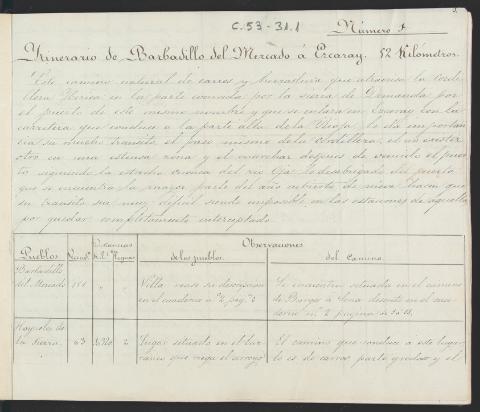 3.
C.53-31.1
Número 1.
Itinerario de Barbadillo del Mercado á Ezcaray. 52 Kilómetros.
Este camino natural de carros y herradura que atraviesa la Cordi-
llera Iberica en la parte conocida por la sierra de Demanda por
el puerto de este mismo nombre y que se enlaza en Ezcaray con la
carretera que conduce a la parte alta de la Rioja, le da importan-
cia su mucho transito, el paso mismo de la cordillera, el no existir
otro en una estensa zona y el marchar despues de vencido el puer-
to siguiendo la estrecha cuenca del rio Oja. Lo desabrigado del puerto
que se encuentra la mayor parte del año cubierto de nieve hacen que
su transito sea muy dificil siendo imposible en las estaciones de aquella
por quedar completamente interceptado.
Pueblos Distancias Observaciones
de los pueblos. del camino.
Barbadillo
del Mercado " " Villa vease su descripcion
en el cuaderno nº 2 pag. 2
Se encuentra situado en el camino
de Burgos á Soria descrito en el cua-
derno nº 2 pagina
Hoyuelos de
la Sierra. 63 2 Lugar situado en el bar-
ranco que riega el arroyo
El camino que conduce a este lugar
lo es de carros parte gredoso y el